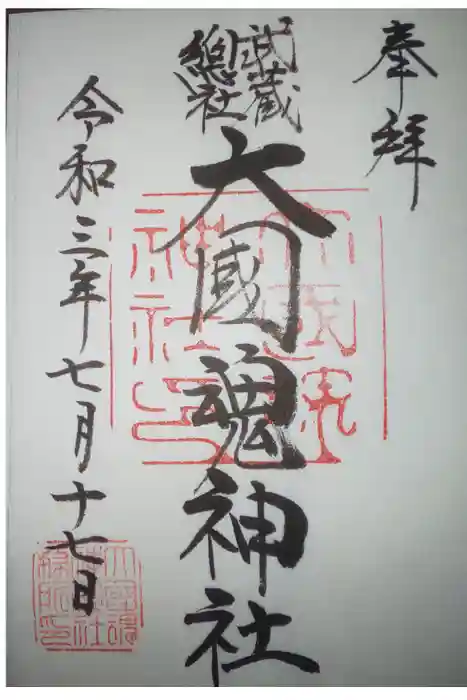 奉拝
武蔵
總社
大國魂神社
令和三年七月十七日